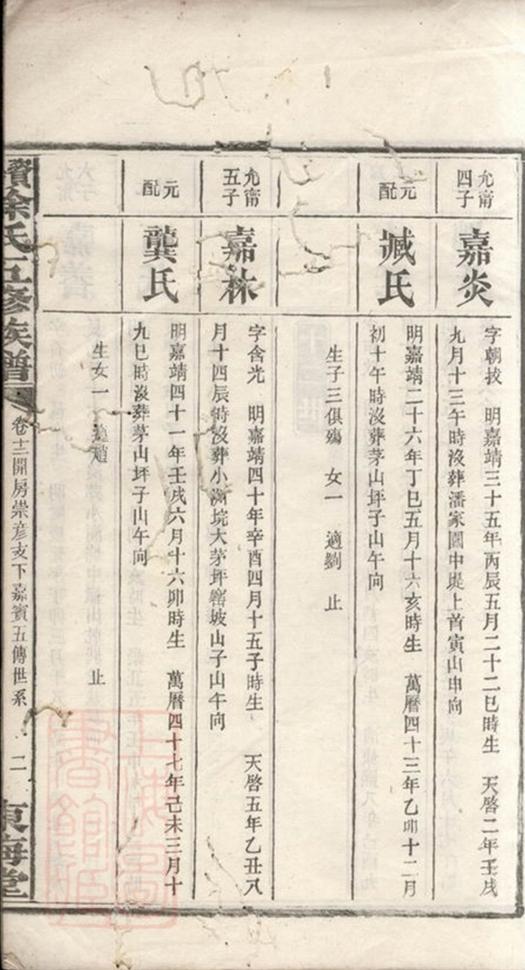 允甯
四子
嘉炎
字朝扠　明嘉靖三十五年丙辰五月二十二巳時生　天啓二年壬戌
九月十三午時沒葬潘家園中堤上首寅山申向
元
配
臧氏
明嘉靖二十六年丁巳五月十六亥時生　萬曆四十三年乙卯十二月
初十午時沒葬茅山坪子山午向
生子三俱殤　女一　適劉　止
允甯
五子
嘉林
字含光　明嘉靖四十年辛酉四月十五子時生　天啓五年乙丑八
月十四辰時沒葬小湖垸大茅坪窰坡山子山午向
元
配
龔氏
明嘉靖四十一年壬戌六月十六卯時生　萬曆四十七年己未三月十
九巳時沒葬茅山坪子山午向
生女一　適趙　止
續徐氏五修族譜
卷十二開房崇彦支下嘉賓五傳世系　二
東海堂